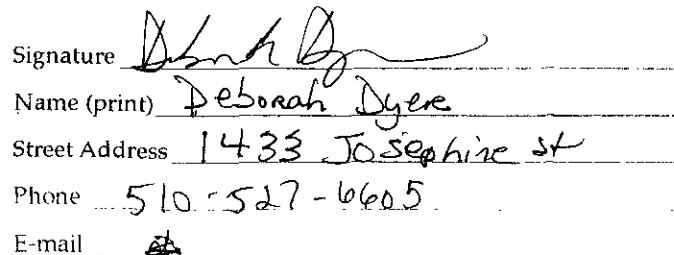 Signature
Name (print) Deborah Dyer
Street Address 1433 Josephine st
Phone 510-527-6605
E-mail